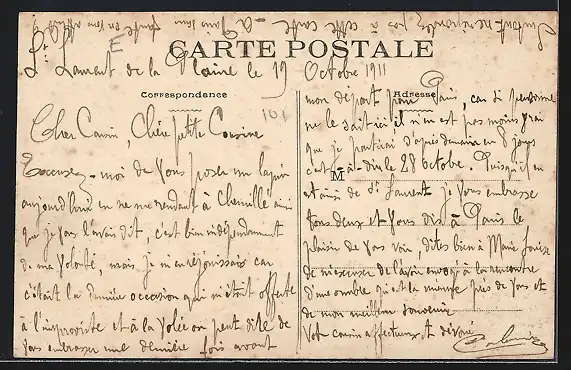 Surtout ne répondez pas à cette carte
E
CARTE POSTALE
St Laurent de la Plaine le 19 Octobre 1911
Correspondance
Adresse
101
Cher Cousin, Chère petite Cousine
Excusez-moi de vous poser un lapin
aujourd'hui en ne me rendant à Chemillé ainsi
que je vous l'avais dit, c'est bien indépendamment
de ma volonté, mais je m'en réjouissais car
c'était la dernière occasion qui m'était offerte
à l'improviste et à la volée on peut dire de
vous embrasser une dernière fois avant
mon départ pour Paris, car si personne
ne le sait ici, il n'en est pas moins vrai
que je partirai d'après demain en 8 jours
c'est-à-dire le 28 octobre. Puisqu'il en
M
est ainsi de St Laurent je vous embrasse
tous deux et vous dis à Paris le
plaisir de vous voir, dites bien à Marie Louise
de m'excuser de l'avoir envoyé à la rencontre
d'une ombre qui est la mienne près de vous et
de mon meilleur souvenir
Votre cousin affectueux et dévoué